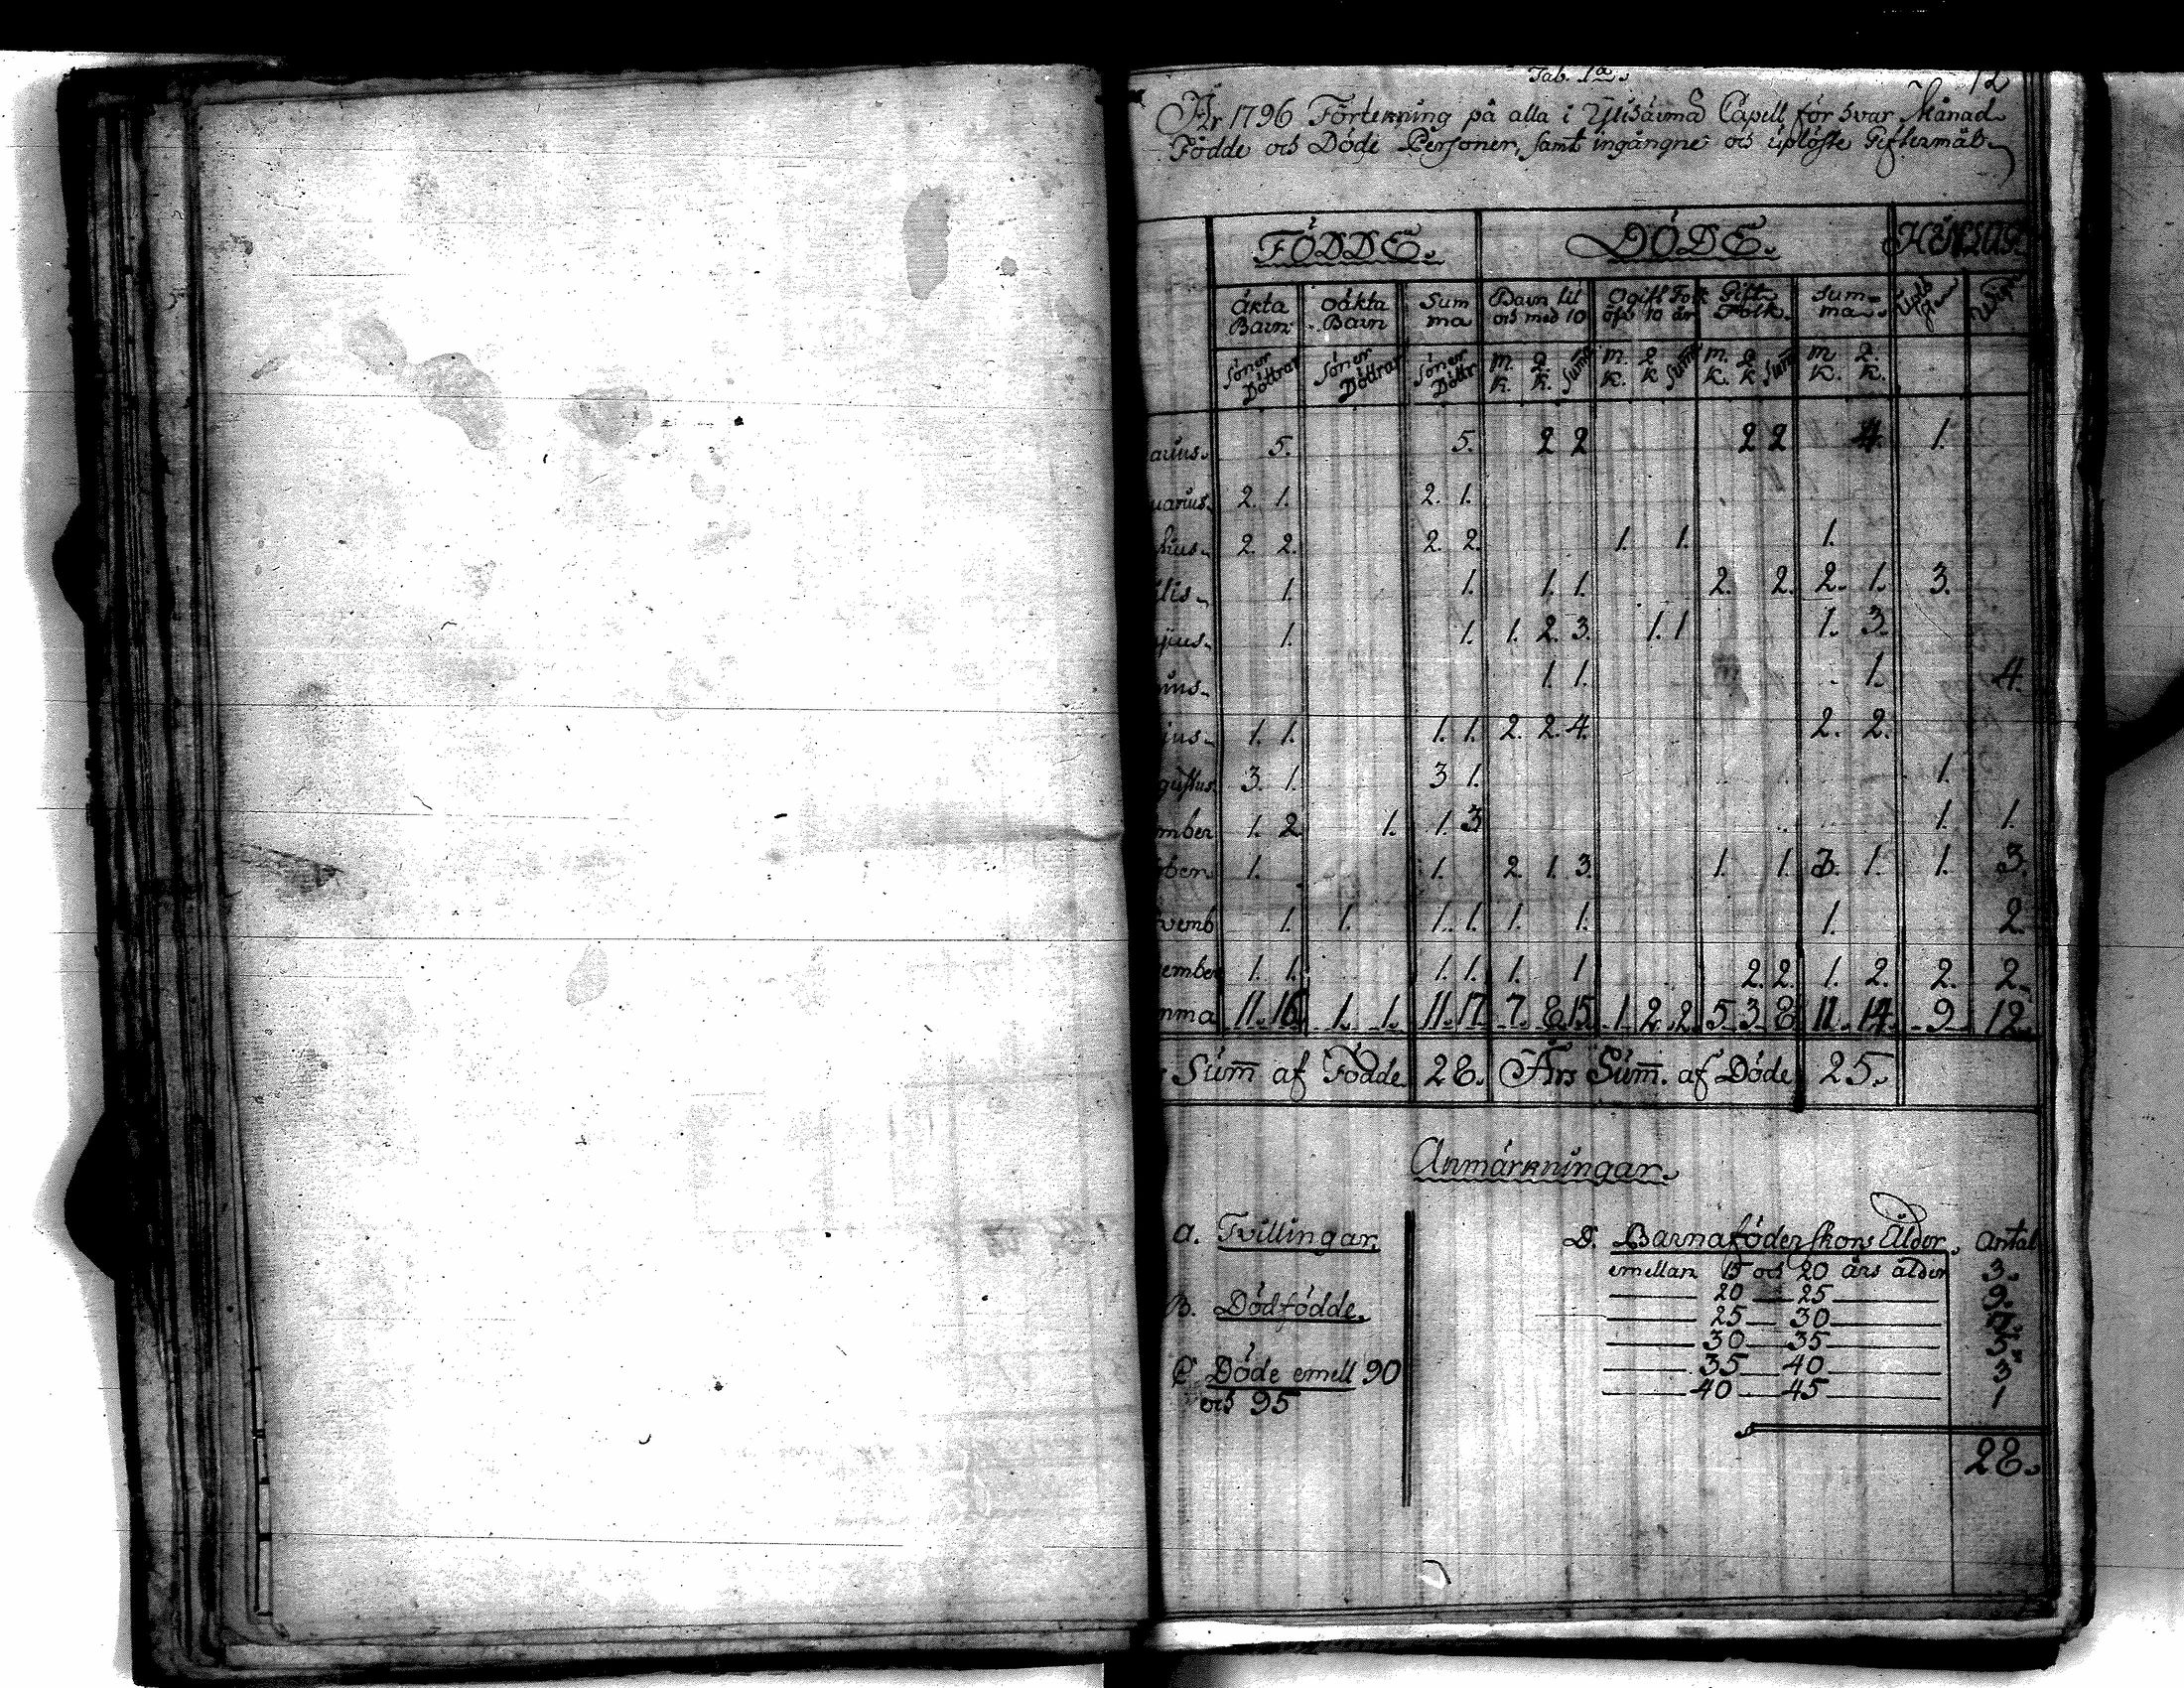 Tab. 1a.
12
År 1796 Förtekning på alla i Capell för hvar Månad
Födde och Döde Personer, samt ingångne och uplöste Giftermål.
FÖDDE. DÖDE.
Äkta Barn oäkta Barn Summa Barn til och med 10 Ogift Folk öfr 10 år Gift Folk. Summa.
Söner Döttrar Söner Döttrar Söner Döttr. m. k. 2. k. Summ m. k. 2 k Summ m. k. 2 k Summ m k. 2. k.
arius. 5. 5. 2 2 2 2 4. 1.
uarius. 2. 1. 2. 1.
tius. 2. 2. 2. 2. 1. 1. 1.
ilis. 1. 1. 1. 1. 2. 2. 2. 1. 3.
jus. 1. 1. 1. 2. 3. 1. 1 1. 3.
nius. 1. 1. 1. 4.
jus. 1. 1. 1. 1. 2. 2. 4. 2. 2.
gustus. 3. 1. 3 1. 1.
mber 1. 2 1. 1. 3 1. 1.
ber. 1. 1. 2. 1. 3. 1. 1. 3. 1. 1. 3.
vemb 1. 1. 1. 1. 1. 1. 1. 2.
ember 1. 1. 1. 1. 1. 1 2. 2. 1. 2. 2. 2.
mma 11. 16 1. 1. 11. 17 7. 8 15. 1 2. 2. 5. 3. 8 11. 14. 9 12.
Sum̄ af Födde 28. Års Sum̄. af Döde 25.
Anmärkningar.
a. Tvillingar.
B. Dödfödde.
C Döde emell 90
och 95
D. Barnaföderskors Ålder. Antal
emellan 15 och 20 års ålder 3.
20 25 9.
25 30 7.
30 35 5.
35 40 3
40 45 1
28.